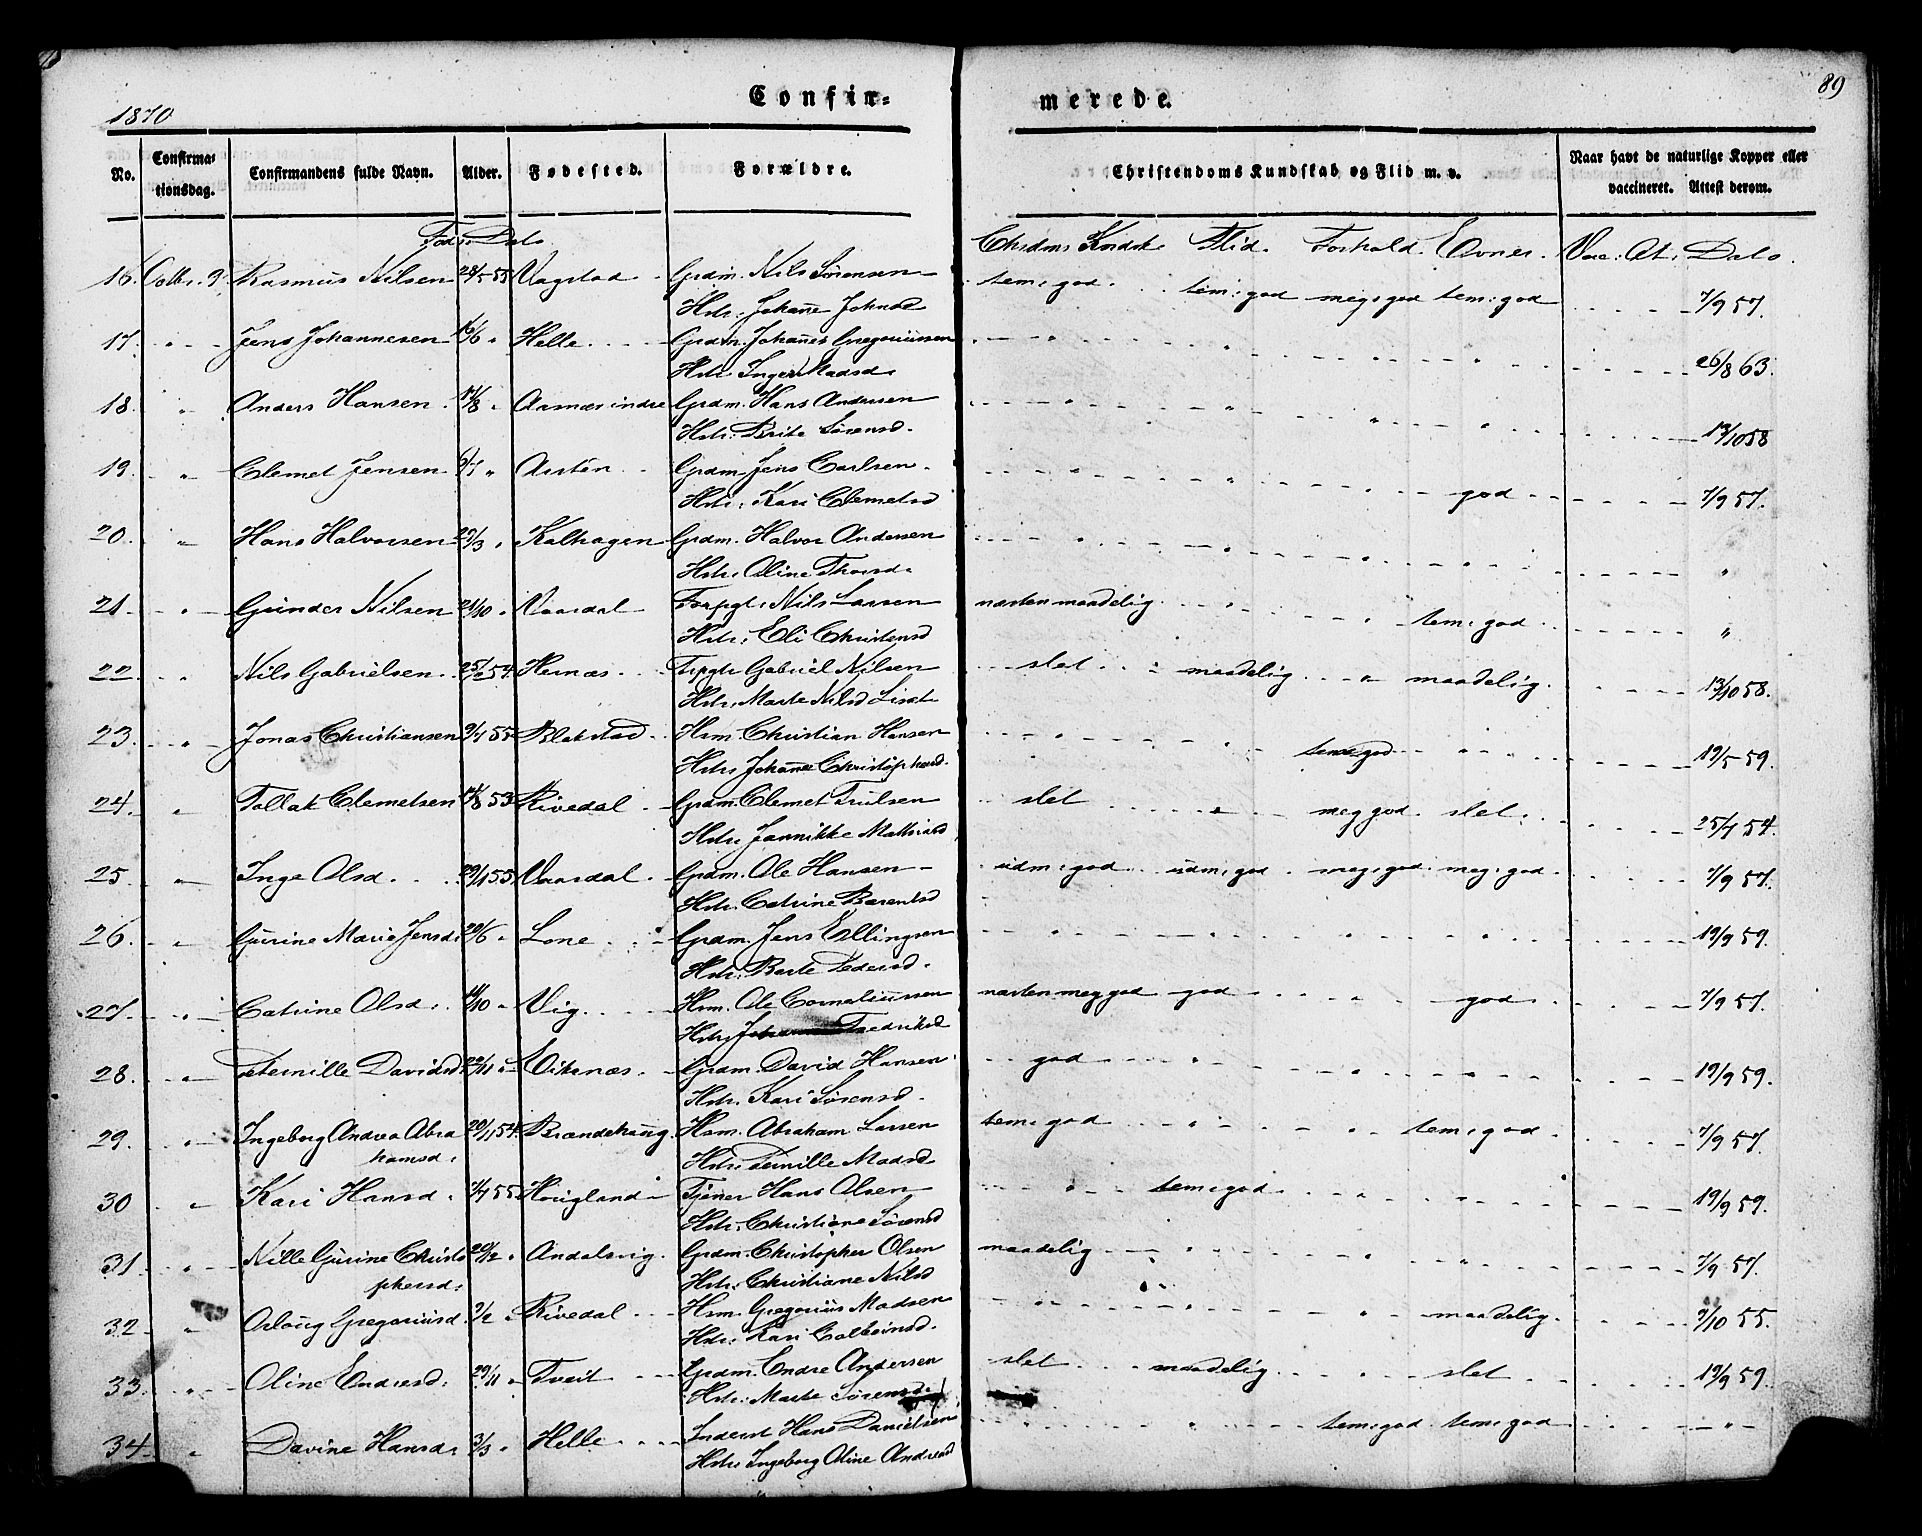 1870
Confir=
merede.
89
No.
Confirma=
tionsdag.
Confirmandens fulde Navn.
Alder.
Fødested.
Forældre.
Christendoms Kundskab og Flid m. v.
Naar havt de naturlige Kopper eller
vaccineret. Attest derom.
Føds: Dato
Chrdms Kndsk: Flid. Forhold. Evner. Vac: At: Dato.
16. Octbr. 9. Rasmus Nilsen 28/5 55 Vagstad Grdm. Nils Sørensen tem: god. tem: god meg: god tem: god
Hstr. Johane Johnsd 7/9 57.
17. " Jens Johannesen 16/6 " Helle Grdm. Johanes Gregoriussen " " " "
Hstr. Inger Madsd. 26/8 63.
18. " Anders Hansen 17/8 " Aamæs indre Grdm. Hans Andersen " " " "
Hstr. Brite Sørensd. 13/10 58
19. " Clemet Jensen 6/7 " Aasten Grdm. Jens Carlsen " " " god
Hstr. Kari Clemetsd 7/9 57.
20. " Hans Halvorsen 29/3 " Kalhagen Grdm. Halvor Andersen " " " "
Hstr. Oline Thorsd. "
21. " Gunder Nilsen 21/10 " Vaardal Forpgt. Nils Larsen næsten maadelig " " tem: god
Hstr. Eli Christensd "
22 " Nils Gabrielsen 25/ 54 Hernæs Frpgtr Gabriel Nilsen slet maadelig " maadelig
Hstr. Marte Nilsd 13/10 58.
23. " Jonas Christiansen 9/7 55 Blakstad Hsm. Christian Hansen " " tem: god "
Hstr. Johane Christophersd. 19/5 59.
24. " Tollak Clemetsen 14/8 53 Rivedal Grdm. Clemet Trulsen slet " meg god. slet
Hstr. Jannikke Mathiasd 25/7 54.
25 " Inge Olsd. 29/1 55 Vaardal Grdm. Ole Hansen udm: god udm: god meg: god meg: god
Hstr. Catrine Barentsd 7/9 57.
26. " Gurine Marie Jensd. 29/6 " Lone Grdm. Jens Ellingsen " " " "
Hstr. Barte Pedersd. 19/9 59.
27. " Catrine Olsd. 14/10 " Vig Hsm. Ole Corneliussen næsten meg god god " god
Hstr. Johanne Fredriksd 7/9 57.
28. " Pernille Davidsd. 22/11 " Viknæs Grdm. David Hansen god " " "
Hstr. Kari Sørensd. 19/9 59.
29. " Ingeborg Andrea Abra 20/11 54. Brandehaug Hsm. Abraham Larsen tem: god " " tem: god
hamsd. Hstr. Pernille Madsd 7/9 57.
30 " Kari Hansd. 7/7 55 Hougland Tjener Hans Olsen " tem: god " "
Hstr. Christiane Sørensd 19/9 59.
31. " Nille Gurine Christo 20/2 " Aadalsvig Grdm. Christopher Olsen maadelig " " "
phersd. Hstr. Christiane Nilsd 7/9 57.
32 " Oslaug Gregoriusd. 7/2 " Rivedal Hsm. Gregorius Madsen " " " maadelig
Hstr. Kari Colbeinsd. 7/10 55.
33. " Oline Endresd. 29/11 " Tveit Grdm. Endre Andersen slet maadelig " slet
Hstr. Marte Sørensd. 19/9 59.
34 " Davine Hansd. 3/3 " Helle Inderst Hans Danielsen " " tem: god tem: god
Hstr. Ingeborg Oline Andreasd "